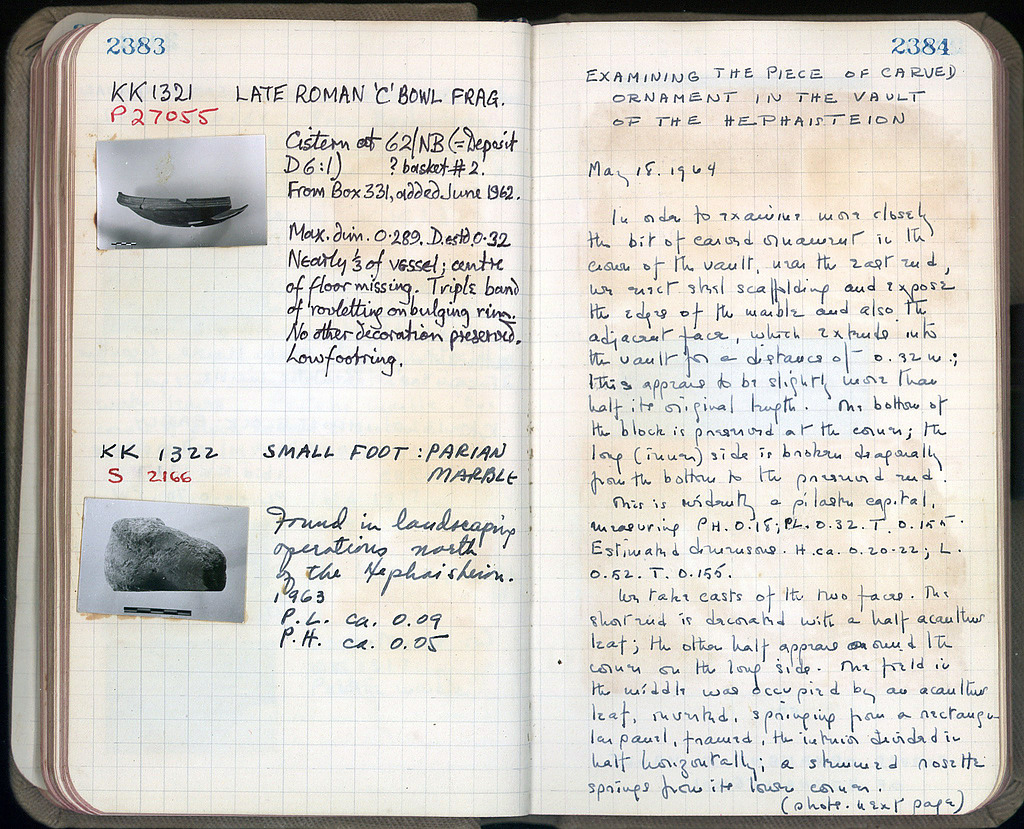 2383
KK 1321 LATE ROMAN 'C' BOWL FRAG.
P 27055
Cistern at 62/NB (= Deposit
D 6:1) ? basket # 2.
From Box 331, added June 1962.
Max. dim. 0.289. D. est'd 0.32
Nearly 1/3 of vessel; centre
of floor missing. Triple band
of rouletting on bulging rim.
No other decoration preserved.
Low footring.
KK 1322 SMALL FOOT : PARIAN
S 2166 MARBLE
Found in landscaping
operations north
of the Hephaisteion.
1963
P.L. ca. 0.09
P.H. ca. 0.05
2384
EXAMINING THE PIECE OF CARVED
ORNAMENT IN THE VAULT
OF THE HEPHAISTEION
May 18. 1964
In order to examine more closely
the bit of carved ornament in the
crown of the vault, near the east end,
we erect steel scaffolding and expose
the edges of the marble and also the
adjacent face, which extends into
the vault for a distance of 0.32 m.;
this appears to be slightly more than
half its original length. The bottom of
the block is preserved at the corner; the
long (inner) side is broken diagonally
from the bottom to the preserved end.
This is evidently a pilaster capital,
measuring PH. 0.18; PL. 0.32. T. 0.155.
Estimated dimensions. H. ca. 0.20-22; L.
0.52. T. 0.155.
We take casts of the two faces. The
short end is decorated with a half acanthus
leaf; the other half appears around the
corner on the long side. The field in
the middle was occupied by an acanthus
leaf, inverted, springing from a rectangu-
lar panel, framed, the interior divided in
half horizontally; a stemmed rosette
springs from its lower corner.
(photo. next page)